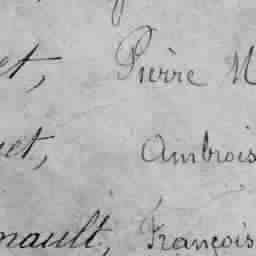 et, Pierre M
et, Ambrois
nault, François